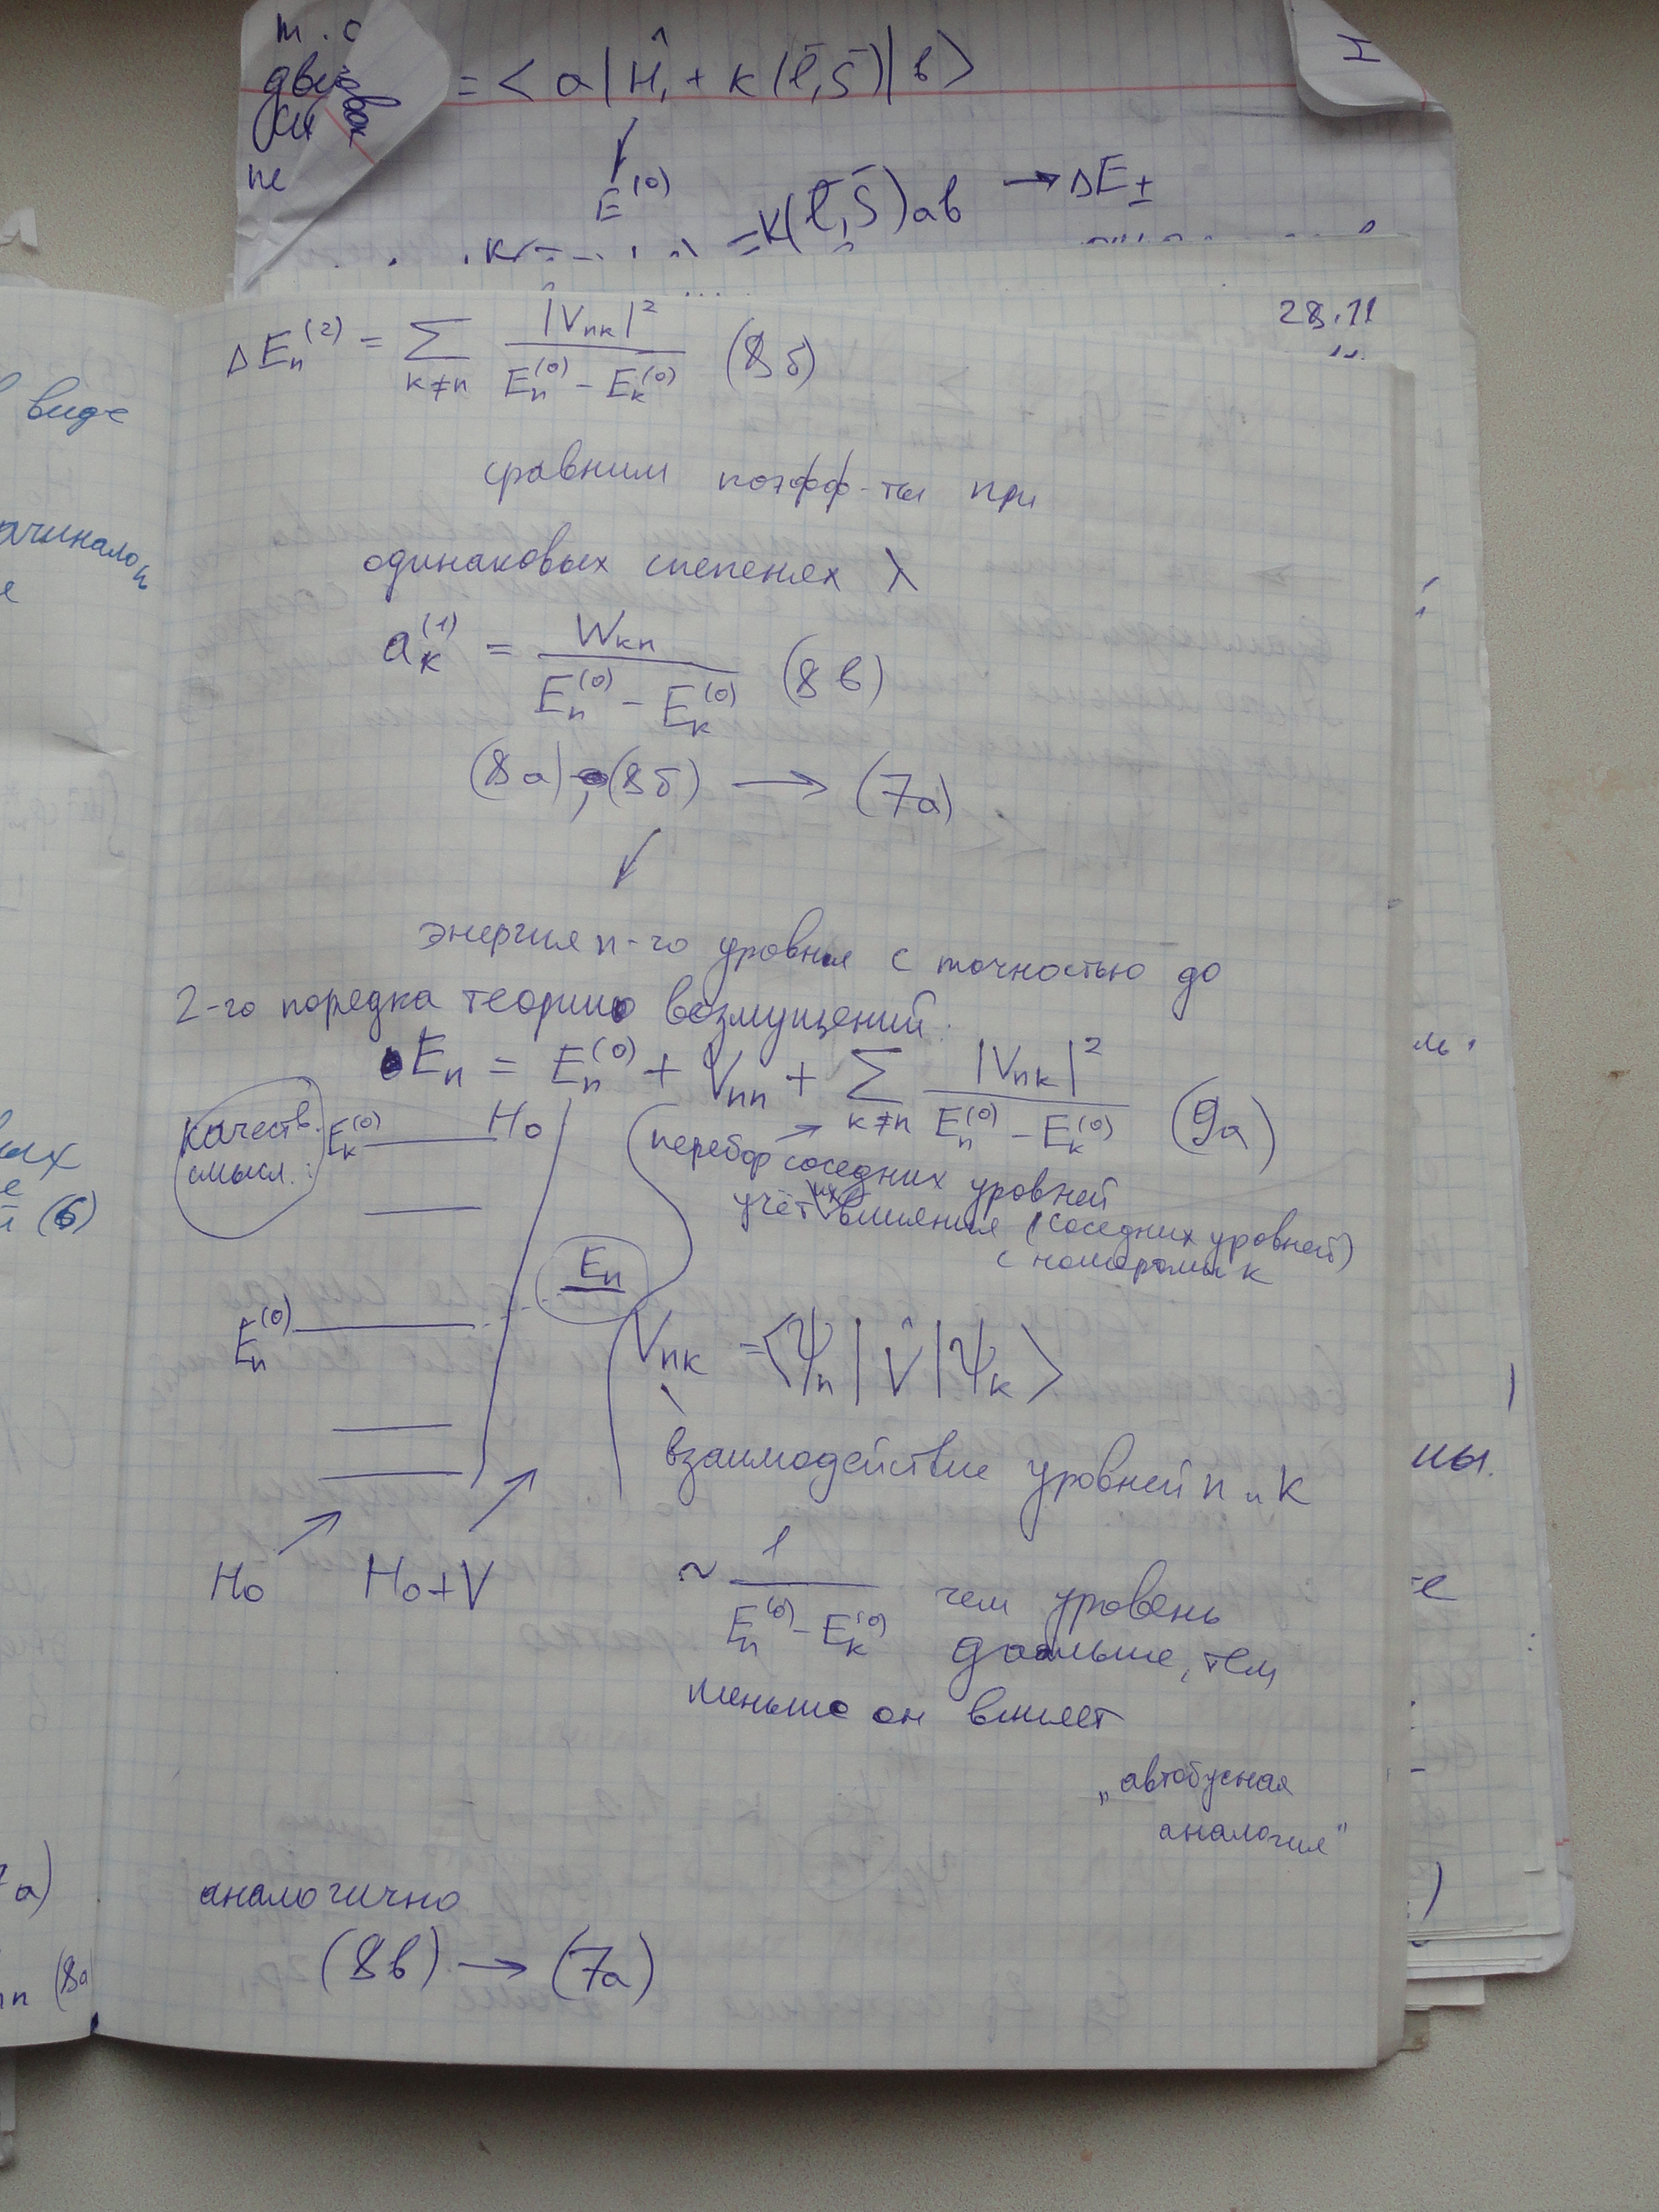 = < a | Ĥ₁ + к (l̄, s̄) | в >
E⁽⁰⁾
= к(l̄, s̄)ав → ΔE±
I
не
28.11
ΔEₙ⁽²⁾ = Σ_{k≠n} |Vₙₖ|² / (Eₙ⁽⁰⁾ − Eₖ⁽⁰⁾) (8б)
сравним коэфф-ты при
одинаковых степенях λ
aₖ⁽¹⁾ = Wₖₙ / (Eₙ⁽⁰⁾ − Eₖ⁽⁰⁾) (8в)
(8а), (8б) → (7а)
энергия n-го уровня с точностью до
2-го порядка теорию возмущений.
Eₙ = Eₙ⁽⁰⁾ + Vₙₙ + Σ_{k≠n} |Vₙₖ|² / (Eₙ⁽⁰⁾ − Eₖ⁽⁰⁾) (9а)
качеств.
смысл:
Eₖ⁽⁰⁾ H₀
перебор соседних уровней
учёт их влияния (соседних уровней)
с номерами к
Eₙ
Eₙ⁽⁰⁾
Vₙₖ = <Ψₙ | V̂ | Ψₖ>
взаимодействие уровней n и k
H₀ H₀+V
~ 1 / (Eₙ⁽⁰⁾ − Eₖ⁽⁰⁾) чем уровень
дальше, тем
меньше он влияет
„автобусная
аналогия"
аналогично
(8в) → (7а)
в виде
(6)
(8а